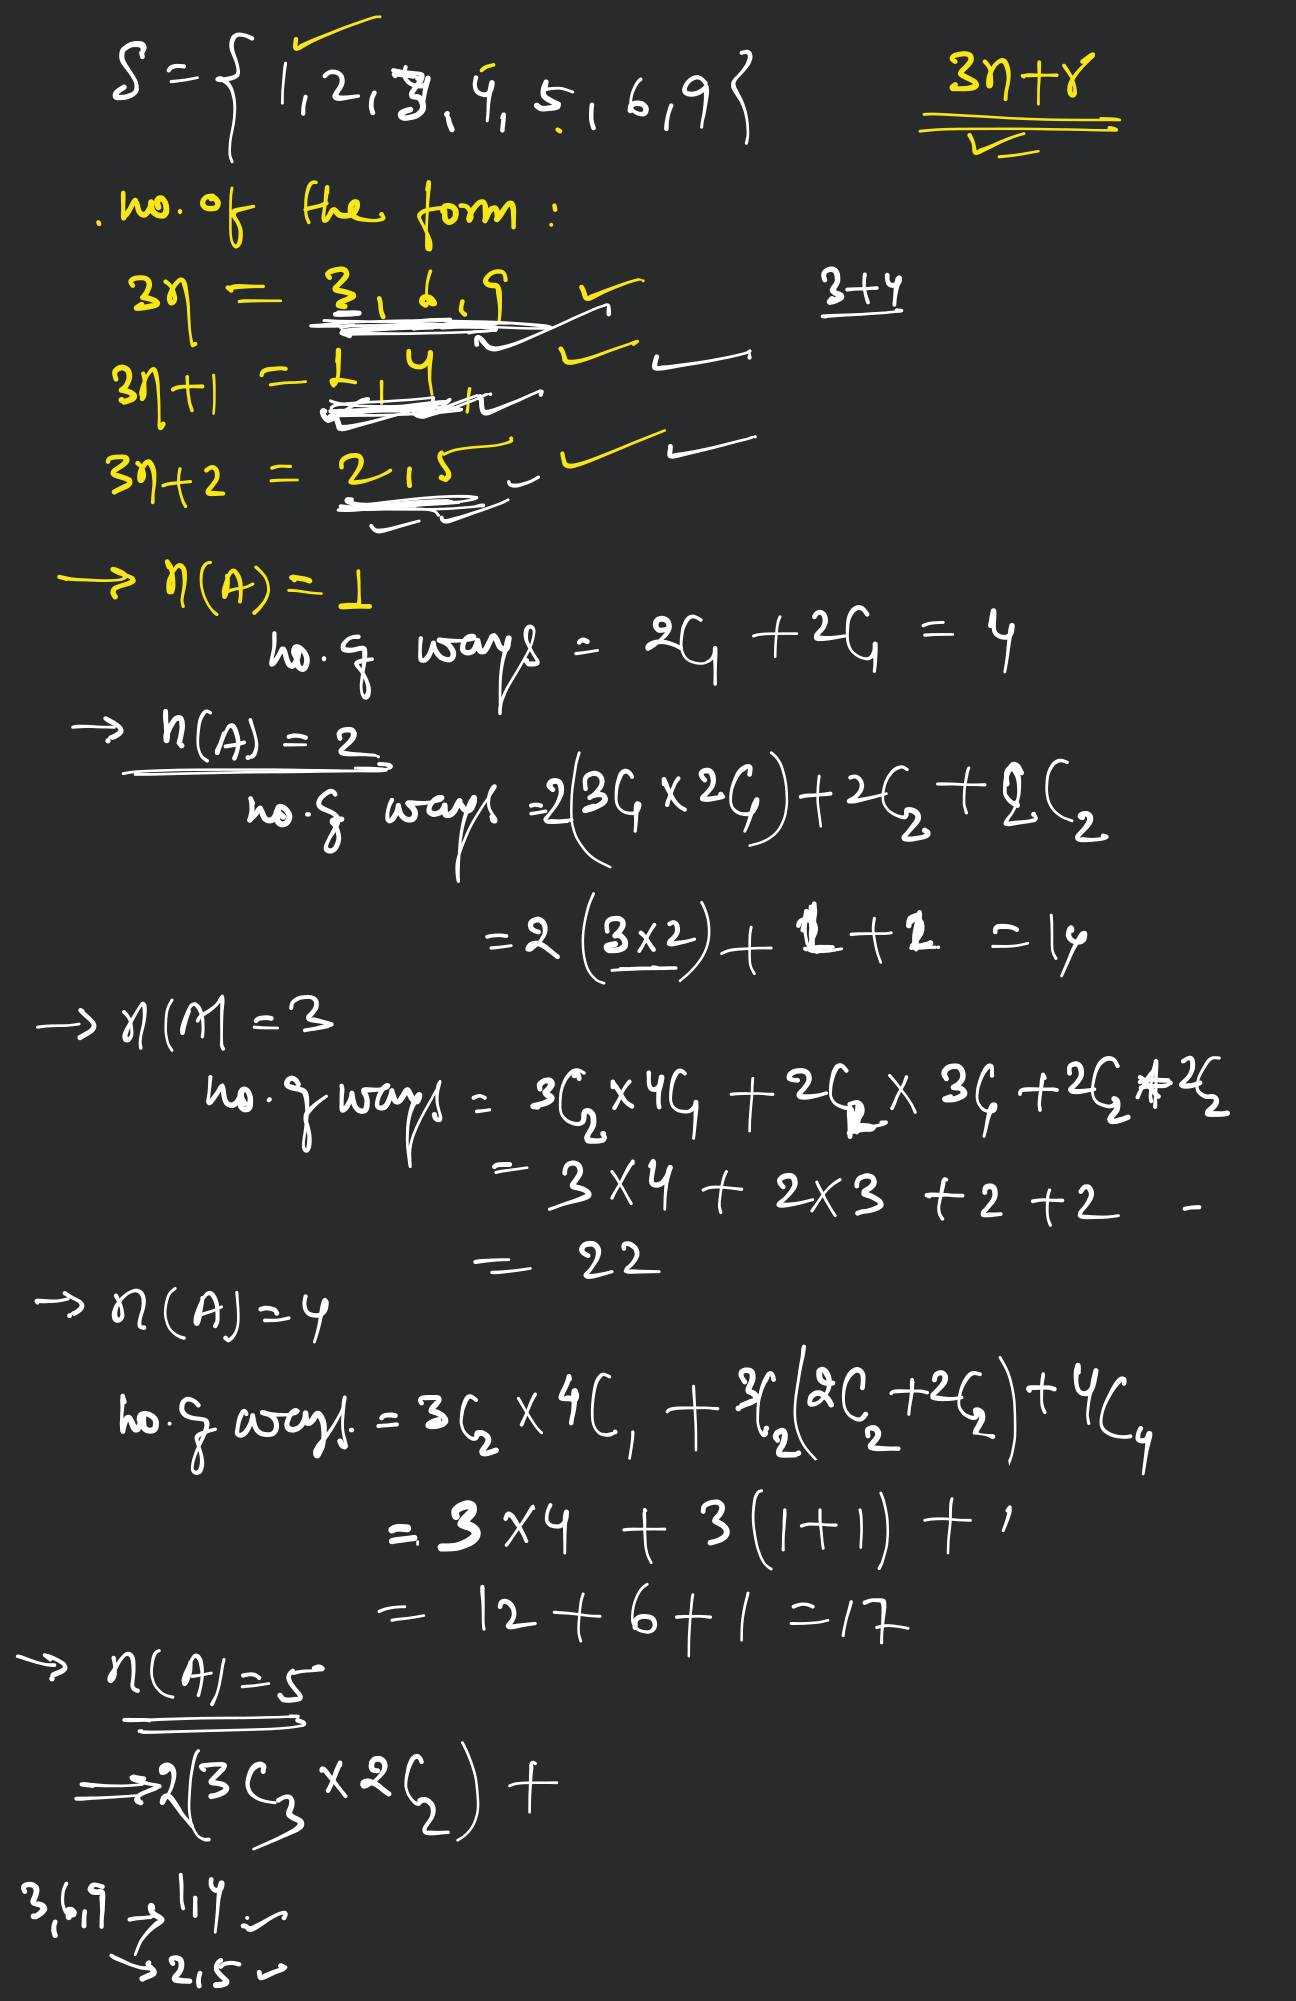 S = { 1, 2, 3, 4, 5, 6, 9 } 3n+r
. no. of the form :
3n = 3, 6, 9 3+4
3n+1 = 1, 4,
3n+2 = 2, 5
→ n(A) = 1
no. of ways = 2C₁ + 2C₁ = 4
→ n(A) = 2
no. of ways = 2(3C₁ × 2C₁) + 2C₂ + 2C₂
= 2 (3×2) + 1 + 1 = 14
→ n(A) = 3
no. of ways = 3C₂ × 4C₁ + 2C₁ × 3C₁ + 2C₂ + 2C₂
= 3 × 4 + 2×3 + 2 + 2 -
= 22
→ n(A) = 4
no. of ways. = 3C₂ × 4C₁ + 3C₂(2C₂ + 2C₂) + 4C₄
= 3 × 4 + 3 (1+1) + 1
= 12 + 6 + 1 = 17
→ n(A) = 5
⇒ 2(3C₃ × 2C₂) +
3,6,9 → 1,4
→ 2,5